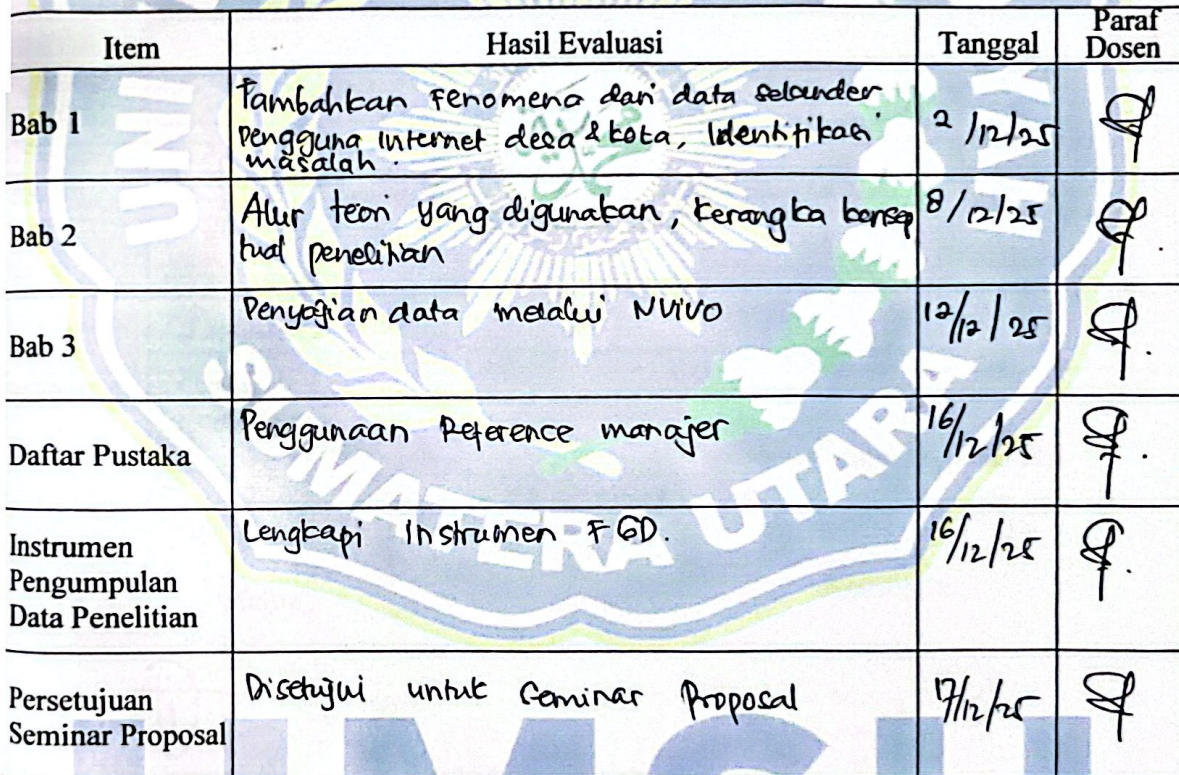 Item Hasil Evaluasi Tanggal Paraf Dosen
Bab 1
Tambahkan Fenomena dari data sekunder
pengguna internet desa & kota, Identifikasi
masalah.
2/12/25
Bab 2
Alur teori yang digunakan, kerangka konsep
tual penelitian
8/12/25
Bab 3
Penyajian data melalui NVIVO
12/12/25
Daftar Pustaka
Penggunaan Reference manajer
16/12/25
Instrumen
Pengumpulan
Data Penelitian
Lengkapi Instrumen FGD.
16/12/25
Persetujuan
Seminar Proposal
Disetujui untuk Seminar Proposal
17/12/25
SUMATERA UTARA
UMSU